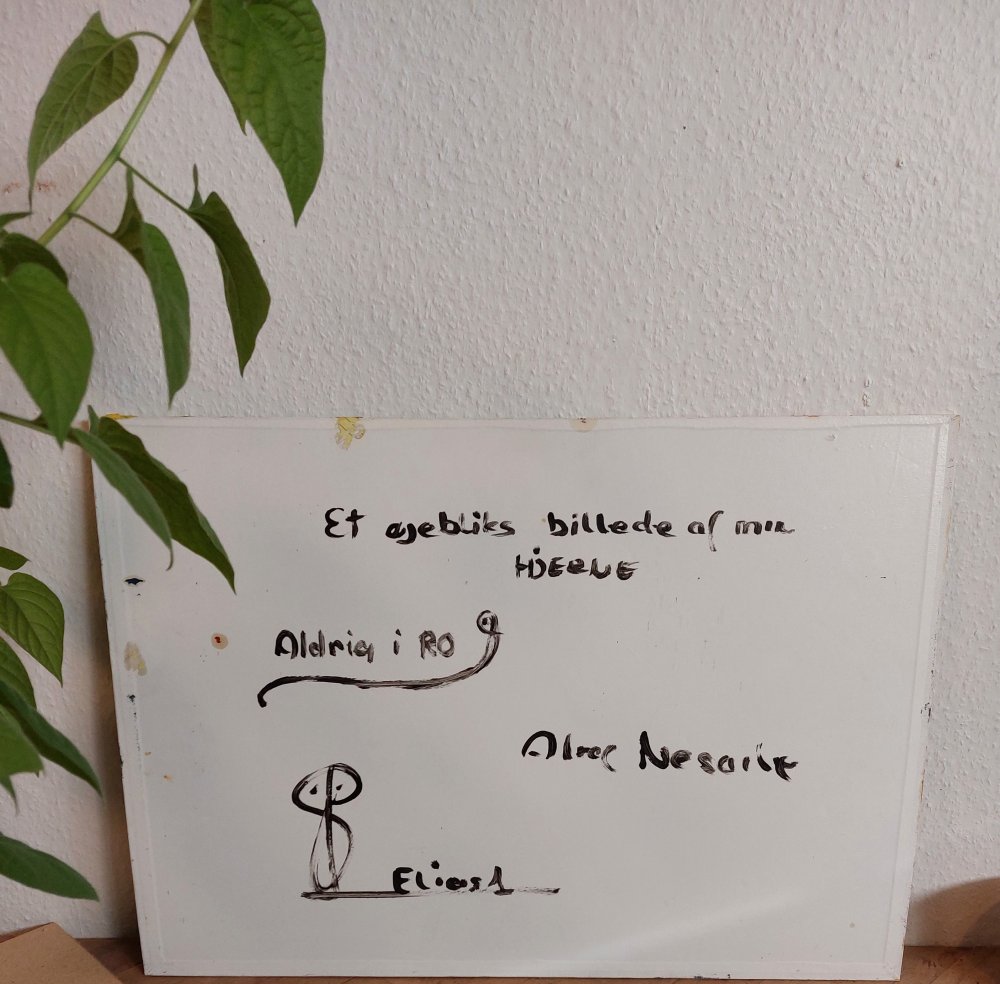 Et øjebliks billede af min
HJERNE
Aldrig i RO
Nesarit
Elias1